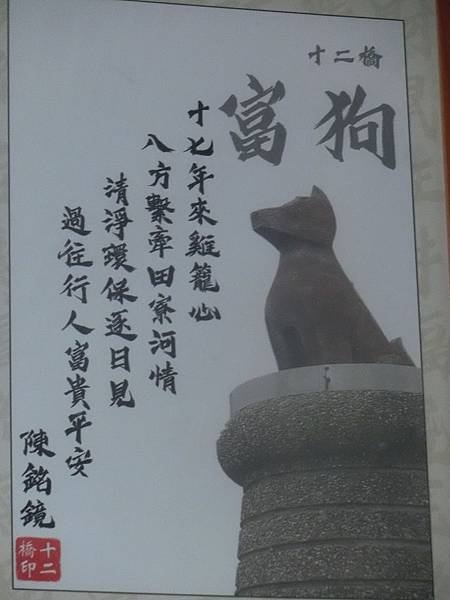 十二橋
富狗
十七年來雞籠心
八方繫牽田寮河情
清淨環保逐日見
過往行人富貴平安
陳銘鏡
十二
橋印